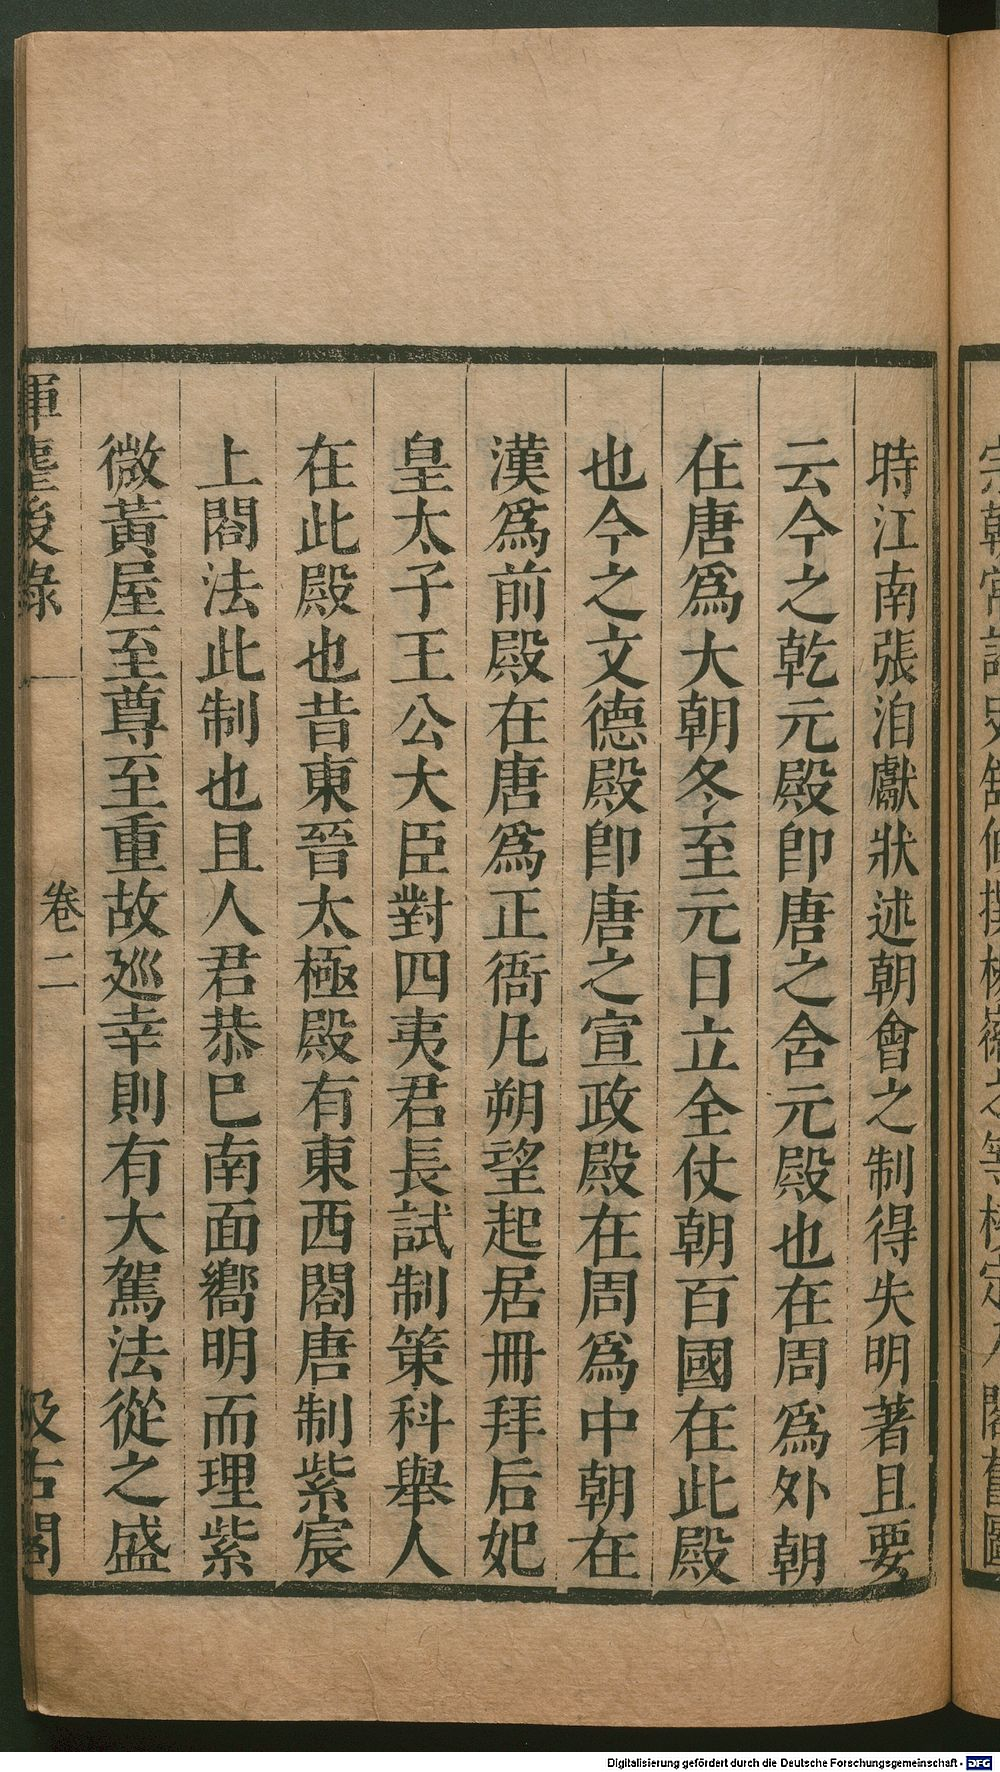 時江南張洎獻狀述朝會之制得失明著且要
云今之乾元殿卽唐之含元殿也在周爲外朝
在唐爲大朝冬至元日立全仗朝百國在此殿
也今之文德殿卽唐之宣政殿在周爲中朝在
漢爲前殿在唐爲正衙凡朔望起居冊拜后妃
皇太子王公大臣對四夷君長試制策科舉人
在此殿也昔東晉太極殿有東西閤唐制紫宸
上閤法此制也且人君恭巳南面嚮明而理紫
微黃屋至尊至重故巡幸則有大駕法從之盛
揮麈後錄 卷二 汲古閣
Digitalisierung gefördert durch die Deutsche Forschungsgemeinschaft - DFG